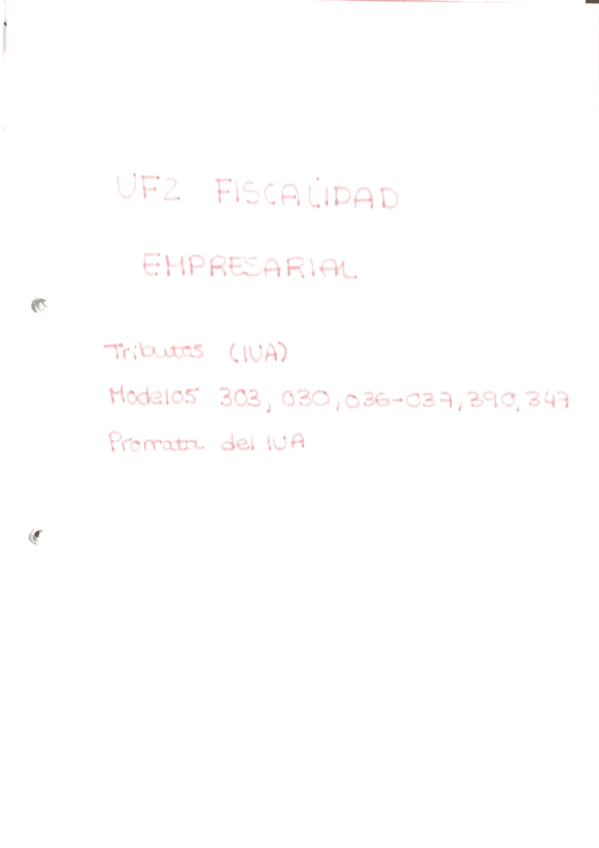 UF2 FISCALIDAD
EMPRESARIAL
Tributos (IVA)
Modelos 303, 030, 036-037, 390, 347
Prorrata del IVA